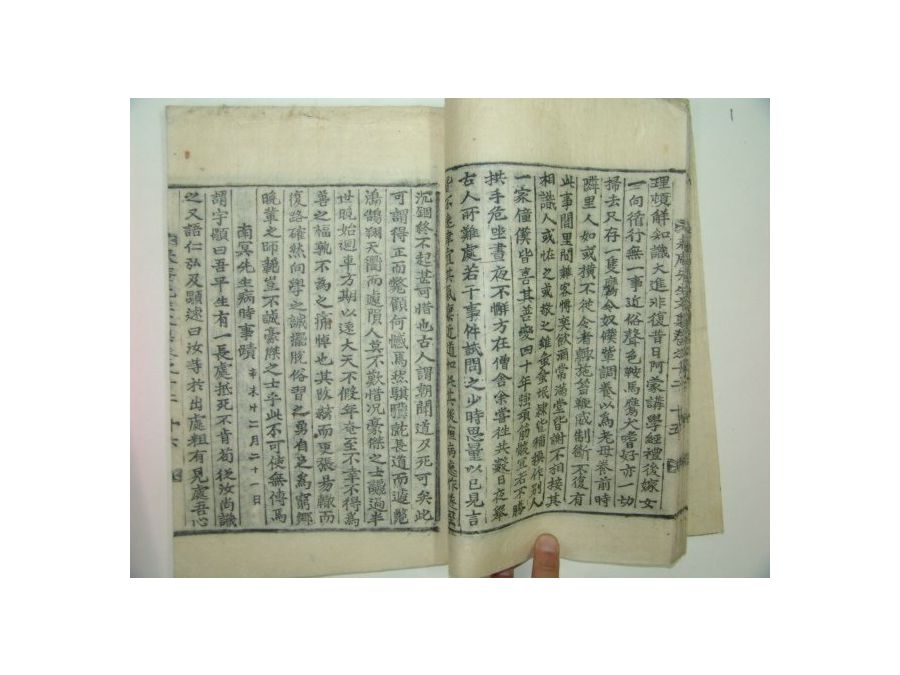 理頓解知識大進非復昔日阿蒙講學經禮後嫁女
一向循行無一事近俗聲色鞍馬鷹犬嗜好亦一切
掃去只存一隻騾令奴僕葷調養以爲老母養前時
隣里人如或橫不從令者輒施笞鞭威制斷不復有
此事間里間雜客博奕飮酒常滿堂皆謝不相接其
相識人或怪之或敬之雖蚩蚩氓隷皆稱操作別人
一家僮僕皆喜其善變四十年強項筋骸宜若不勝
拱手危坐晝夜不懈方在僧舍余嘗往共數日夜擧
古人所難處若干事件試問之少時思量以已見言
沉錮終不起甚可惜也古人謂朝聞道夕死可矣此
可謂得正而斃顧何憾焉然騏驥就長道而遽斃
鴻鵠翔天衢而遽隕人莫不歎惜況豪傑之士讒過半
世晩始迴車方期以遠大天不假年奄至不幸不得爲
善之福孰不爲之痛悼也其改轍而更張易轍而
復路確然向學之誠擺脫俗習之勇自足爲窮鄉
晩輩之師範豈不誠豪傑之士乎此不可使無傳焉
南冥先生病時事蹟 辛未十二月二十一日
謂宇顒曰吾平生有一長處抵死不肯苟從汝尙識
之又語仁弘及顒逑曰汝等於出處粗有見處吾心